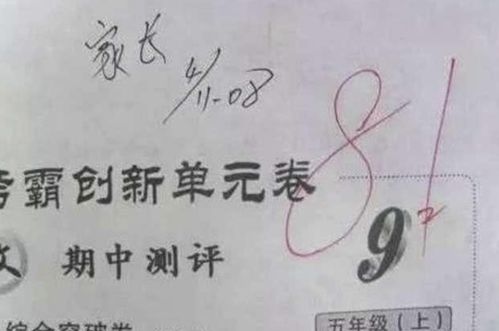 家长
11.08
81
霸创新单元卷
9
期中测评
综合突破卷
五年级（上）